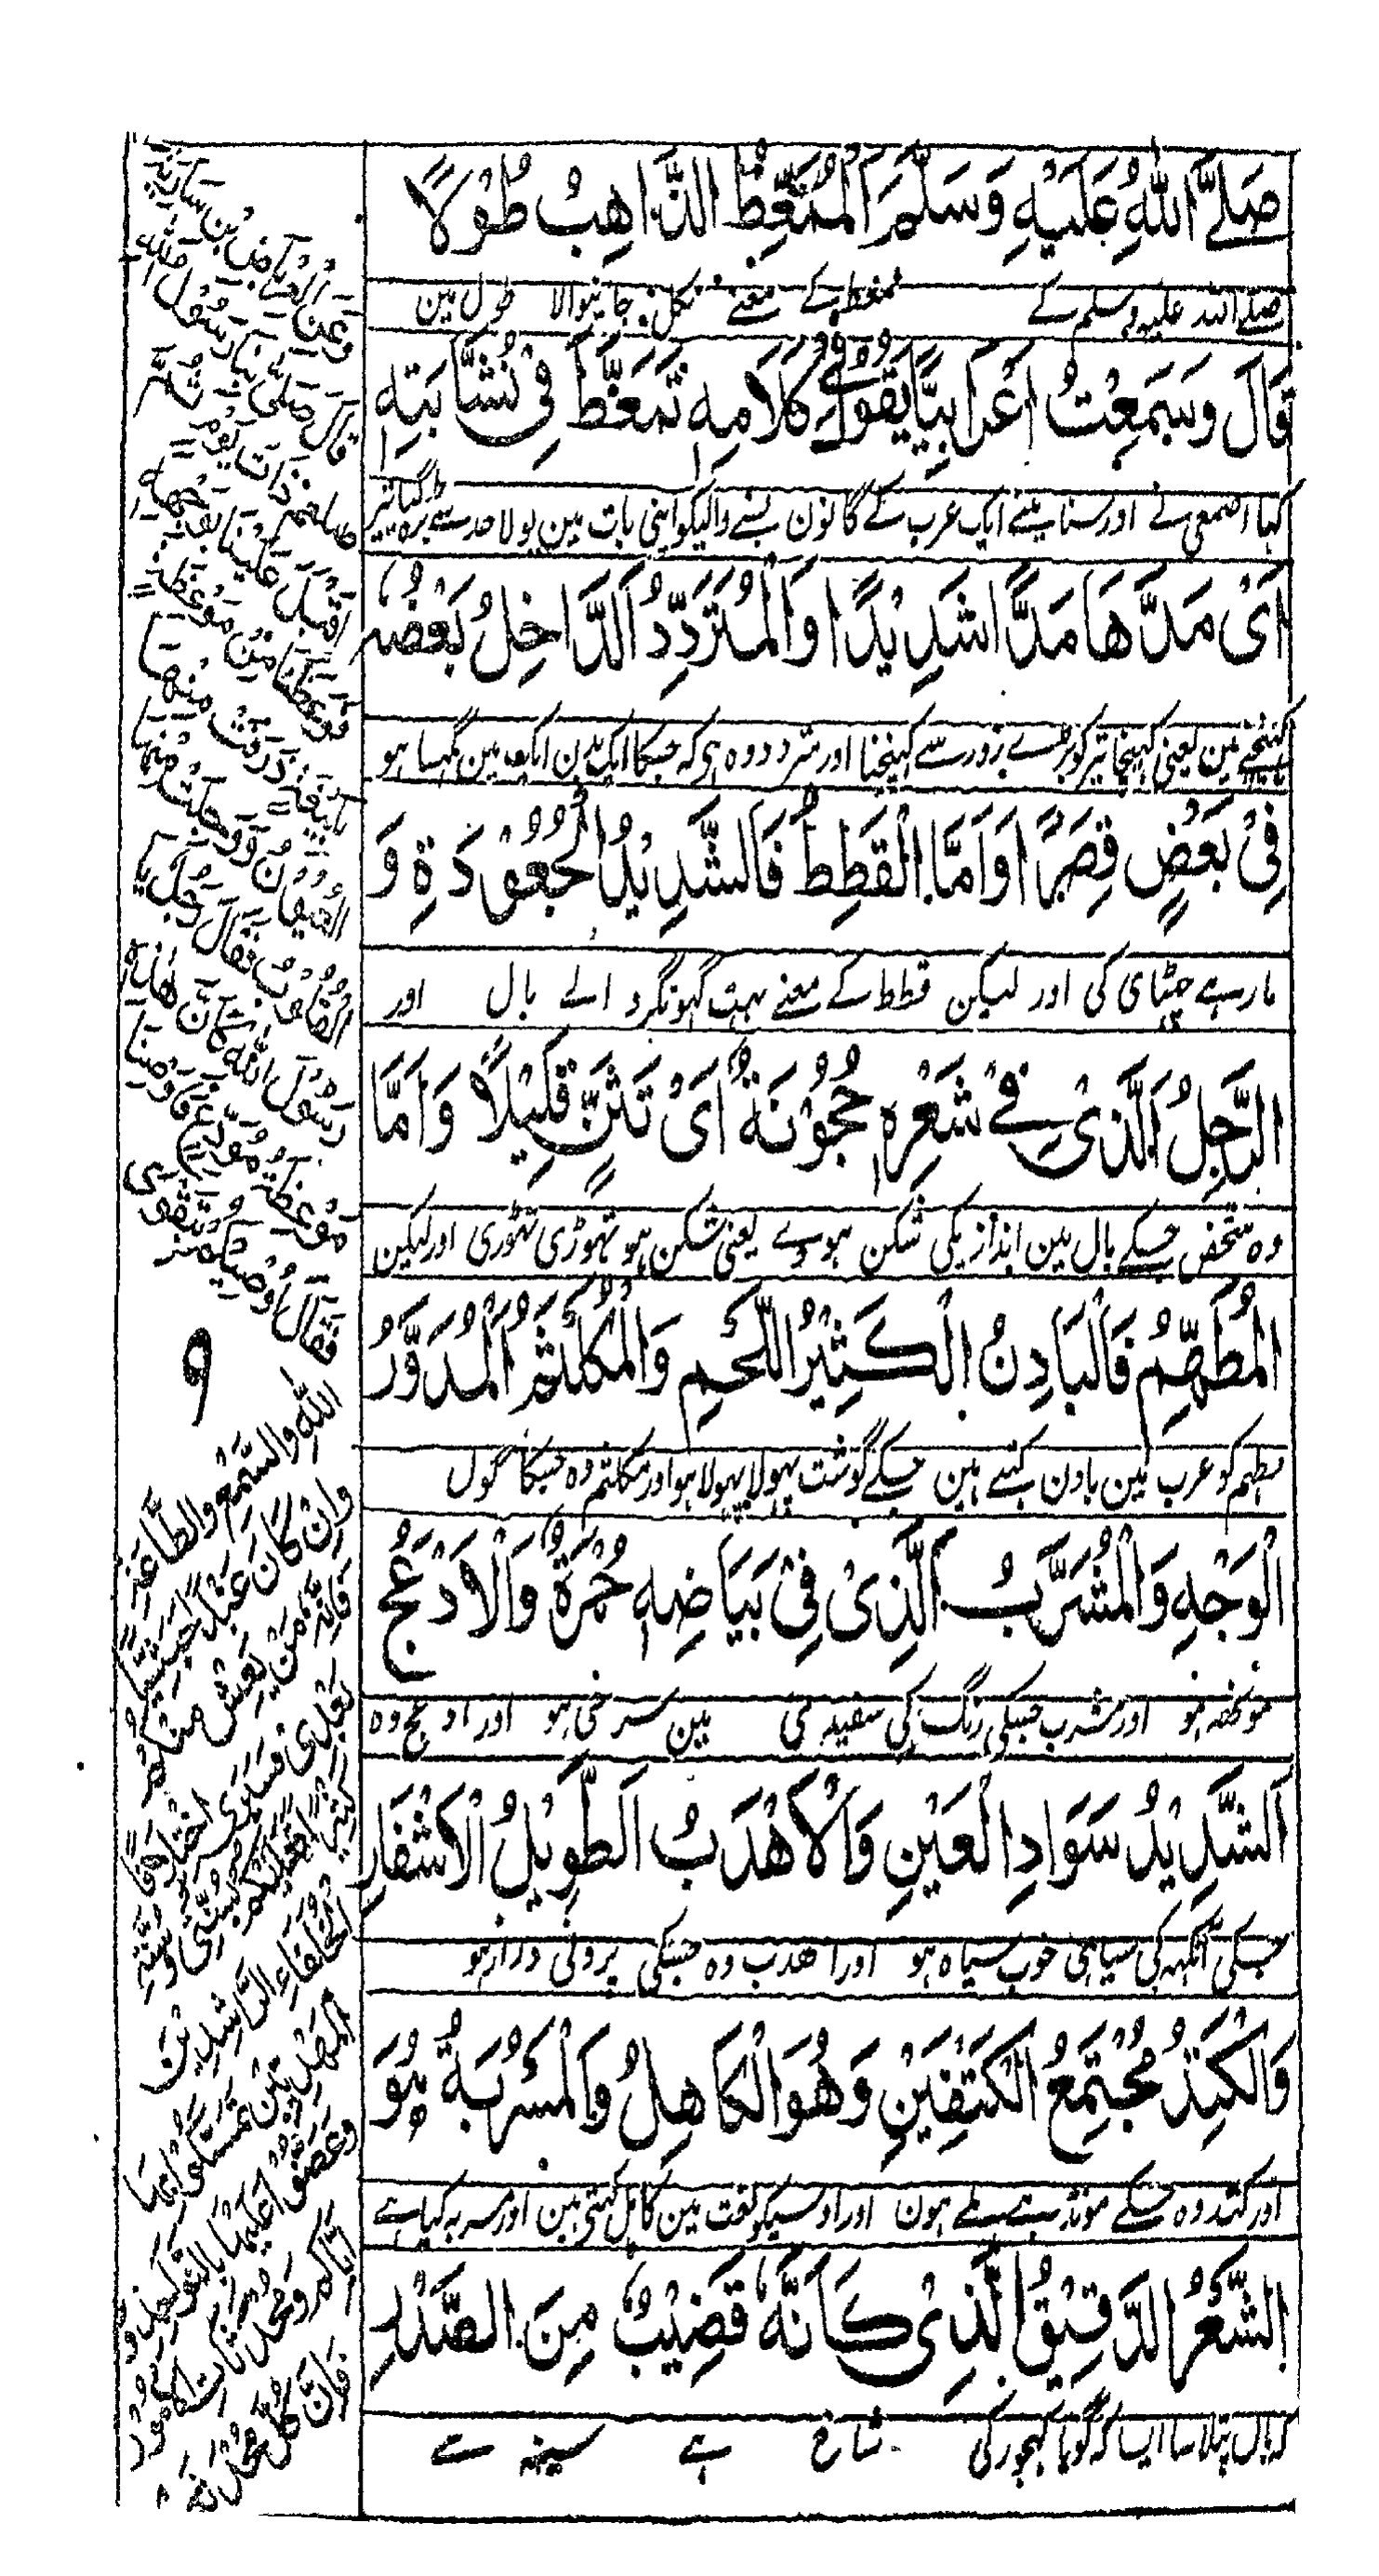 صَلَّے اللّٰهُ عَلَيْهِ وَسَلَّمَ اَلْمُمَّغِطُ الذَّاهِبُ طُوْلًا
صلے اللہ علیہ وسلم کے ممغط کے معنے نکل جانیوالا طول مین
قَالَ وَسَمِعْتُ اَعْرَابِيًّا يَقُوْلُ فِيْ كَلَامِهٖ تَمَغَّطَ فِيْ نُشَّابَتِهٖ
کہا اصمعی نے اور سنا مینے ایک عرب کے گانون بسنے والیکو اپنی بات مین بولا حد سے بڑہ گیا تیر
اَىْ مَدَّهَا مَدًّا شَدِيْدًا وَالْمُتَرَدِّدُ اَلدَّاخِلُ بَعْضُهٗ
کھینچنے مین یعنی کھینچا تیر کو بڑے زور سے کھینچنا اور متردد وہ ہی کہ جسکا ایک بدن ایک مین گھسا ہو
فِىْ بَعْضٍ قِصَرًا وَاَمَّا الْقَطِطُ فَالشَّدِيْدُ الْجُعُوْدَةِ وَ
مارے چٹای کی اور لیکن قطط کے معنے بہت گھونگر والے بال اور
الرَّجِلُ اَلَّذِىْ فِىْ شَعْرِهٖ حُجُوْنَةٌ اَىْ تَثَنٍّ قَلِيْلًا وَاَمَّا
وہ شخص جسکے بال مین انداز یکی شکن ہووے یعنی شکن ہو تہوڑی تہوری اور لیکن
الْمُطَهَّمُ فَالْبَادِنُ الْكَثِيْرُ اللَّحْمِ وَالْمُكَلْثَمُ الْمُدَوَّرُ
مطہم کو عرب مین بادن کہتے ہین جسکے گوشت پہولا پہولا ہو اور مکلثم وہ جسکا گول
الْوَجْهِ وَالْمُشَرَّبُ الَّذِىْ فِىْ بَيَاضِهٖ حُمْرَةٌ وَالْاَدْعَجُ
مونہہ ہو اور مشرب جسکی رنگ کی سفیدی مین سرخی ہو اور ادعج وہ
اَلشَّدِيْدُ سَوَادِ الْعَيْنِ وَالْاَهْدَبُ اَلطَّوِيْلُ الْاَشْفَارِ
جسکی آنکہہ کی سیاہی خوب سیاہ ہو اور اهدب وہ جسکی برونی دراز ہو
وَالْكَتِدُ مُجْتَمَعُ الْكَتِفَيْنِ وَهُوَ الْكَاهِلُ وَالْمَسْرُبَةُ هُوَ
اور کتد وہ جسکے مونڈہے ملے ہون اور اوسیکو لغت مین کاہل کہتی ہین اور مسربہ کیا ہے
الشَّعْرُ الدَّقِيْقُ الَّذِىْ كَاَنَّهٗ قَضِيْبٌ مِنَ الصَّدْرِ
کہ بال پتلا سا ایسا کہ گویا کھجور کی شاخ ہے سینہ سے
وَعَنِ الْعِرْبَاضِ بْنِ سَارِيَةَ
قَالَ صَلّٰى بِنَا رَسُوْلُ اللهِ
صلعم ذَاتَ يَوْمٍ ثُمَّ
اَقْبَلَ عَلَيْنَا بِوَجْهِهٖ
فَوَعَظَنَا مَوْعِظَةً
بَلِيْغَةً ذَرَفَتْ مِنْهَا
الْعُيُوْنُ وَوَجِلَتْ مِنْهَا
الْقُلُوْبُ فَقَالَ رَجُلٌ يَا
رَسُوْلَ اللّٰهِ كَاَنَّ هٰذِهٖ
مَوْعِظَةُ مُوَدِّعٍ فَاَوْصِنَا
فَقَالَ اُوْصِيْكُمْ بِتَقْوَى
٩
اللّٰهِ وَالسَّمْعِ وَالطَّاعَةِ
وَاِنْ كَانَ عَبْدًا حَبَشِيًّا
فَاِنَّهٗ مَنْ يَّعِشْ مِنْكُمْ
بَعْدِىْ فَسَيَرٰى اخْتِلَافًا
كَثِيْرًا فَعَلَيْكُمْ بِسُنَّتِىْ وَسُنَّةِ
الْخُلَفَاءِ الرَّاشِدِيْنَ
الْمَهْدِيِّيْنَ تَمَسَّكُوْا بِهَا
وَعَضُّوْا عَلَيْهَا بِالنَّوَاجِذِ وَ
اِيَّاكُمْ وَمُحْدَثَاتِ الْاُمُوْرِ
فَاِنَّ كُلَّ مُحْدَثَةٍ